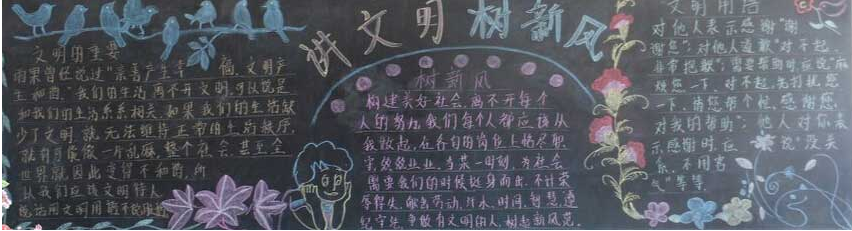 讲文明 树新风
文明的重要
雨果曾经说过"亲善产生幸福,文明产
生和谐。"我们的生活离不开文明,可以说是
和我们的生活息息相关,如果我们的生活缺
少了文明,就无法维持正常的生活秩序,
就有可能像一片乱麻,整个社会,甚至全
世界就因此变得不和谐,所
从我们应该文明待人
树新风
构建美好社会,离不开每个
人的努力,我们每个人都应该从
我做起,在各自的岗位上恪尽职
守,兢兢业业,当某一时刻,为社会
需要我们的时候挺身而出,不计荣
辱得失,献出劳动,汗水,时间,智慧,遵
纪守法,争做有文明的人,树起新风范。
文明用语
对他人表示感谢"谢
谢您";对他人道歉"对不起,
非常抱歉";需要帮助时应说"麻
烦您一下,对不起,先打扰您
一下,请您帮个忙,感谢您
对我的帮助";他人对你表
示感谢时,应说"没关
系,不用客
气"等等。